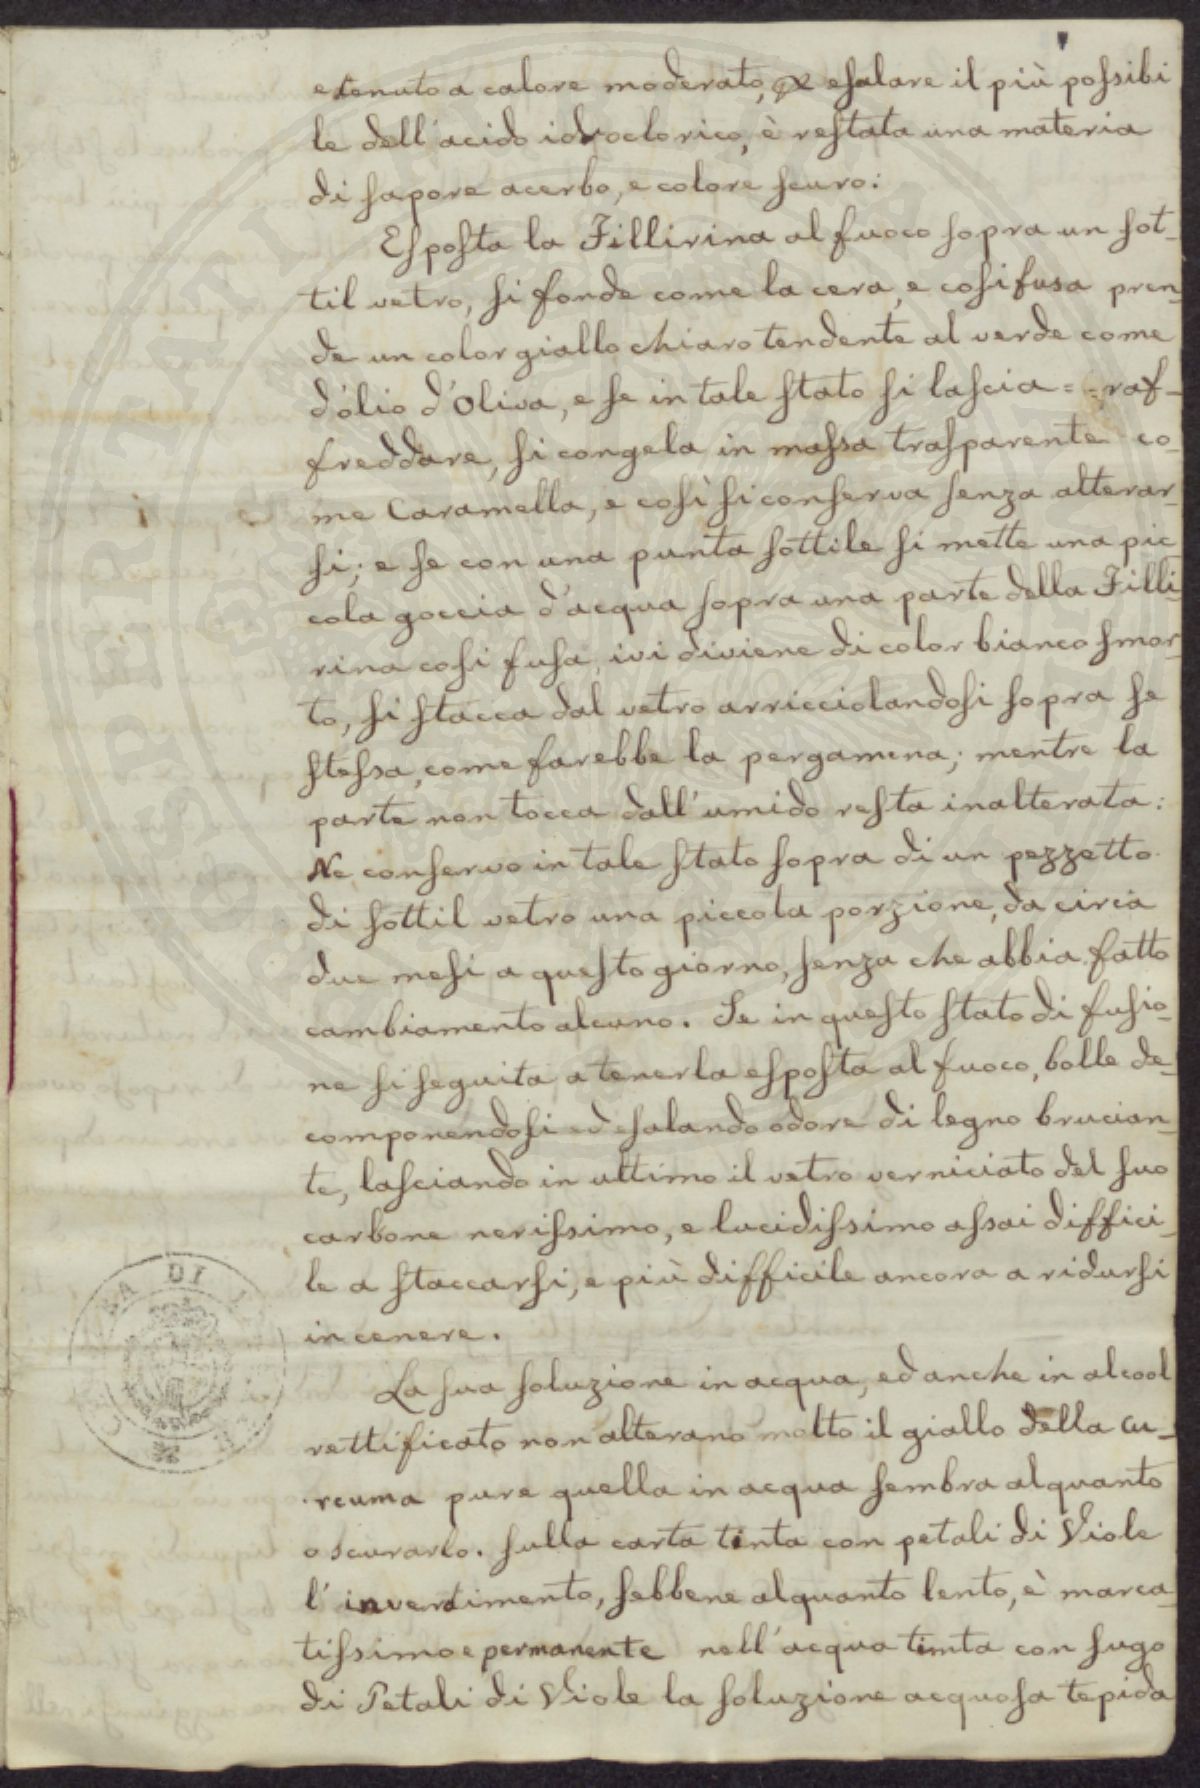 e tenuto a calore moderato, ad esalare il più possibi
le dell'acido idroclorico, è restata una materia
di sapore acerbo, e colore scuro:
Esposta la Fillirina al fuoco sopra un sot-
til vetro, si fonde come la cera, e così fusa pren-
de un color giallo chiaro tendente al verde come
d'olio d'Oliva, e se in tale stato si lascia = raf-
freddare, si congela in massa trasparente co-
me Caramella, e così si conserva senza alterar-
si; e se con una punta sottile si mette una pic
cola goccia d'acqua sopra una parte della Filli-
rina così fusa, ivi diviene di color bianco smor-
to, si stacca dal vetro arricciolandosi sopra se
stessa, come farebbe la pergamena; mentre la
parte non tocca dall'umido resta inalterata:
Ne conservo in tale stato sopra di un pezzetto
di sottil vetro una piccola porzione, da circa
due mesi a questo giorno, senza che abbia fatto
cambiamento alcuno. Se in questo stato di fusio-
ne si seguita a tenerla esposta al fuoco, bolle de-
componendosi ed esalando odore di legno brucian-
te, lasciando in ultimo il vetro verniciato del suo
carbone nerissimo, e lucidissimo assai diffici-
le a staccarsi, e più difficile ancora a ridursi
in cenere.
La sua soluzione in acqua, ed anche in alcool
rettificato non alterano molto il giallo della cu-
rcuma pure quella in acqua sembra alquanto
oscurarlo. sulla carta tinta con petali di Viole
l'inverdimento, sebbene alquanto lento, è marca-
tissimo e permanente nell'acqua tinta con sugo
di Petali di Viole la soluzione acquosa tepida